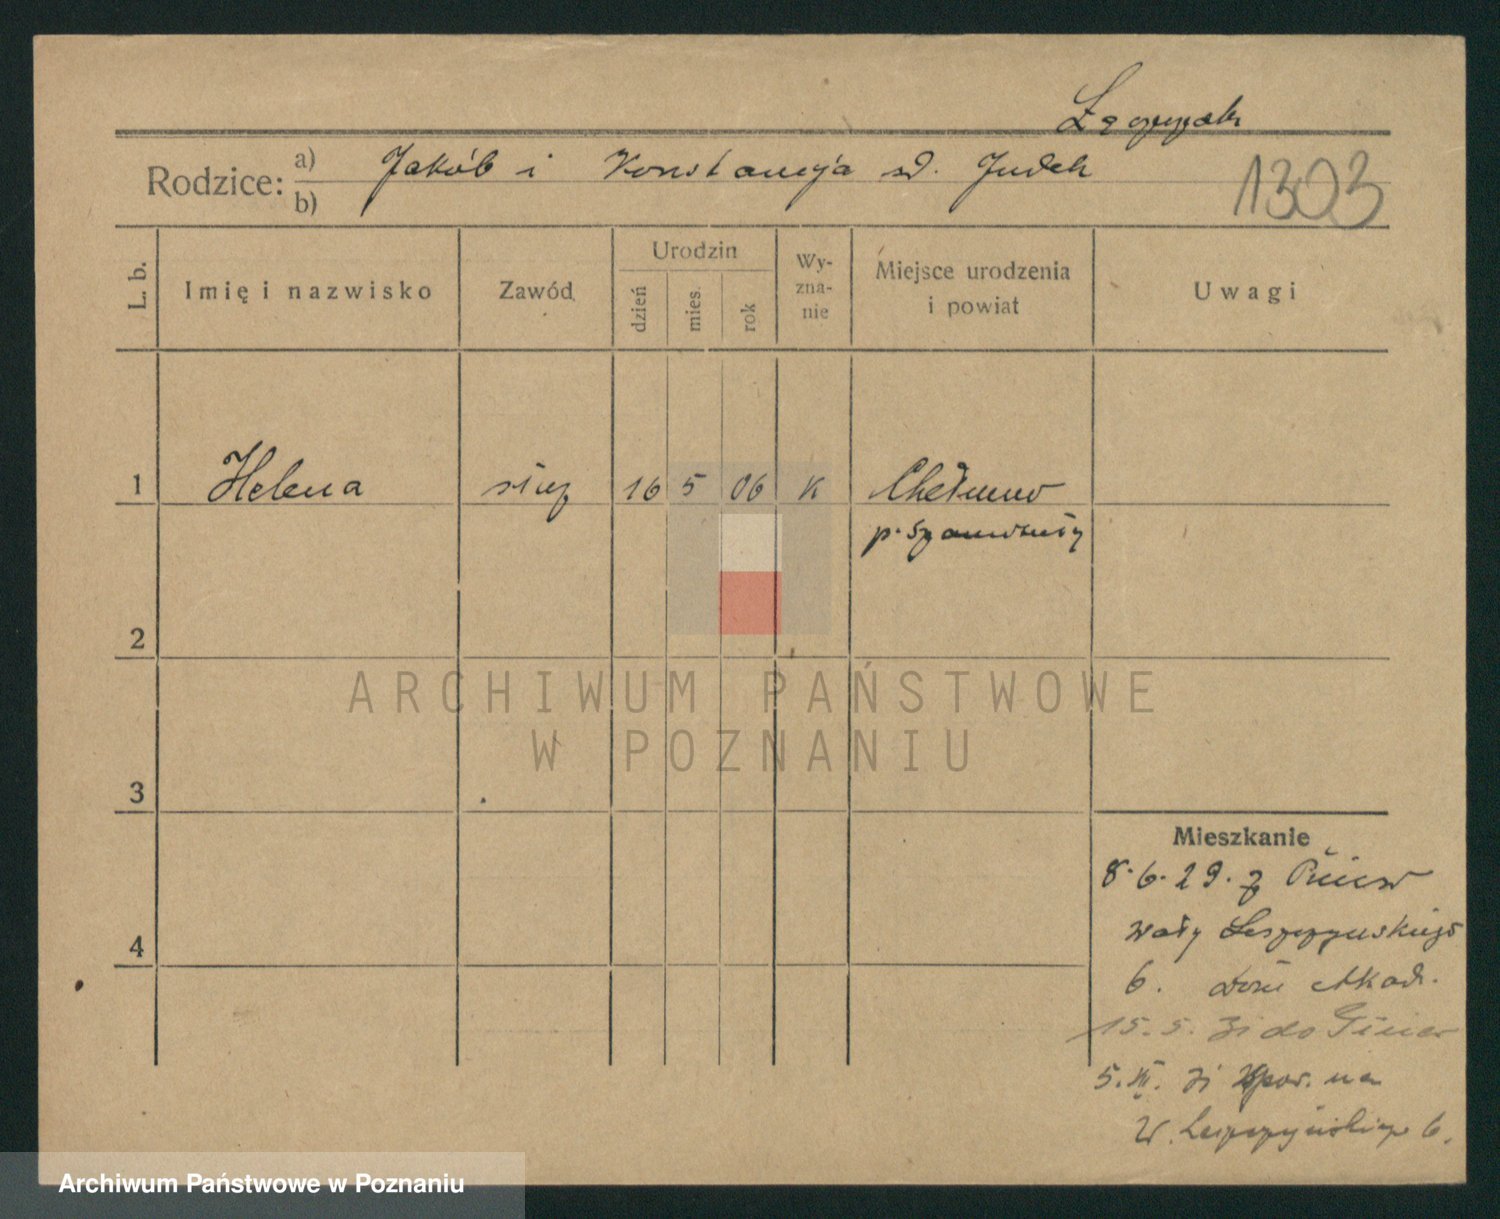 Łączczak
Rodzice: a) Jakób i Konstancja zd. Judek
b)
1303
L. b.
Imię i nazwisko
Zawód
Urodzin
dzień
mies.
rok
Wy-
zna-
nie
Miejsce urodzenia
i powiat
Uwagi
1 Helena służ 16 5 06 K Chełmno
p. Szamotuły
2
ARCHIWUM PAŃSTWOWE
W POZNANIU
3
Mieszkanie
8.6.29. z Pniew
4
wały Leszczyńskiego
6. Dom Akad.
15.5. do Pniew
5.XI. na
W. Leszczyńskiego 6.
Archiwum Państwowe w Poznaniu